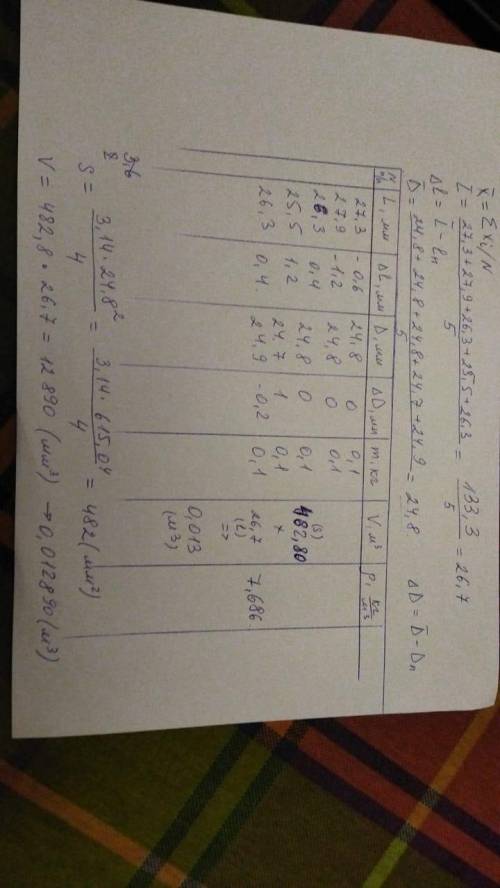 X̄ = Σxᵢ/N
L̄ = (27,3+27,9+26,3+25,5+26,3)/5 = 133,3/5 = 26,7
Δl = l̄ - lₙ
D̄ = (24,8+24,8+24,8+24,7+24,9)/5 = 24,8 ΔD = D̄ - Dₙ
N n/n L, мм ΔL, мм D, мм ΔD, мм m, кг V, м³ ρ, кг/м³
27,3 -0,6 24,8 0 0,1
27,9 -1,2 24,8 0 0,1
26,3 0,4 24,8 0 0,1 (S) 482,80
25,5 1,2 24,7 1 0,1 ×
26,3 0,4 24,9 -0,2 0,1 26,7 (L) => 7,686
0,013 (м³)
S = 3,14·24,8²/4 = 3,14·615,04/4 = 482 (мм²)
V = 482,8 · 26,7 = 12890 (мм³) → 0,012890 (м³)